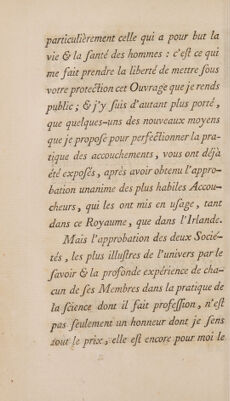 particulièrement celle qui a pour but la
vie & la ſanté des hommes : c'eſt ce qui
me fait prendre la liberté de mettre ſous
votre protection cet Ouvrage que je rends
public ; & j'y ſuis d'autant plus porté ,
que quelques-uns des nouveaux moyens
que je propoſe pour perfectionner la pra-
tique des accouchements , vous ont déjà
été expoſés , après avoir obtenu l'appro-
bation unanime des plus habiles Accou-
cheurs , qui les ont mis en uſage , tant
dans ce Royaume , que dans l'Irlande.
Mais l'approbation des deux Socié-
tés , les plus illuſtres de l'univers par le
ſavoir & la profonde expérience de cha-
cun de ſes Membres dans la pratique de
la ſcience dont il fait profeſſion , n'eſt
pas ſeulement un honneur dont je ſens
tout le prix , elle eſt encore pour moi le